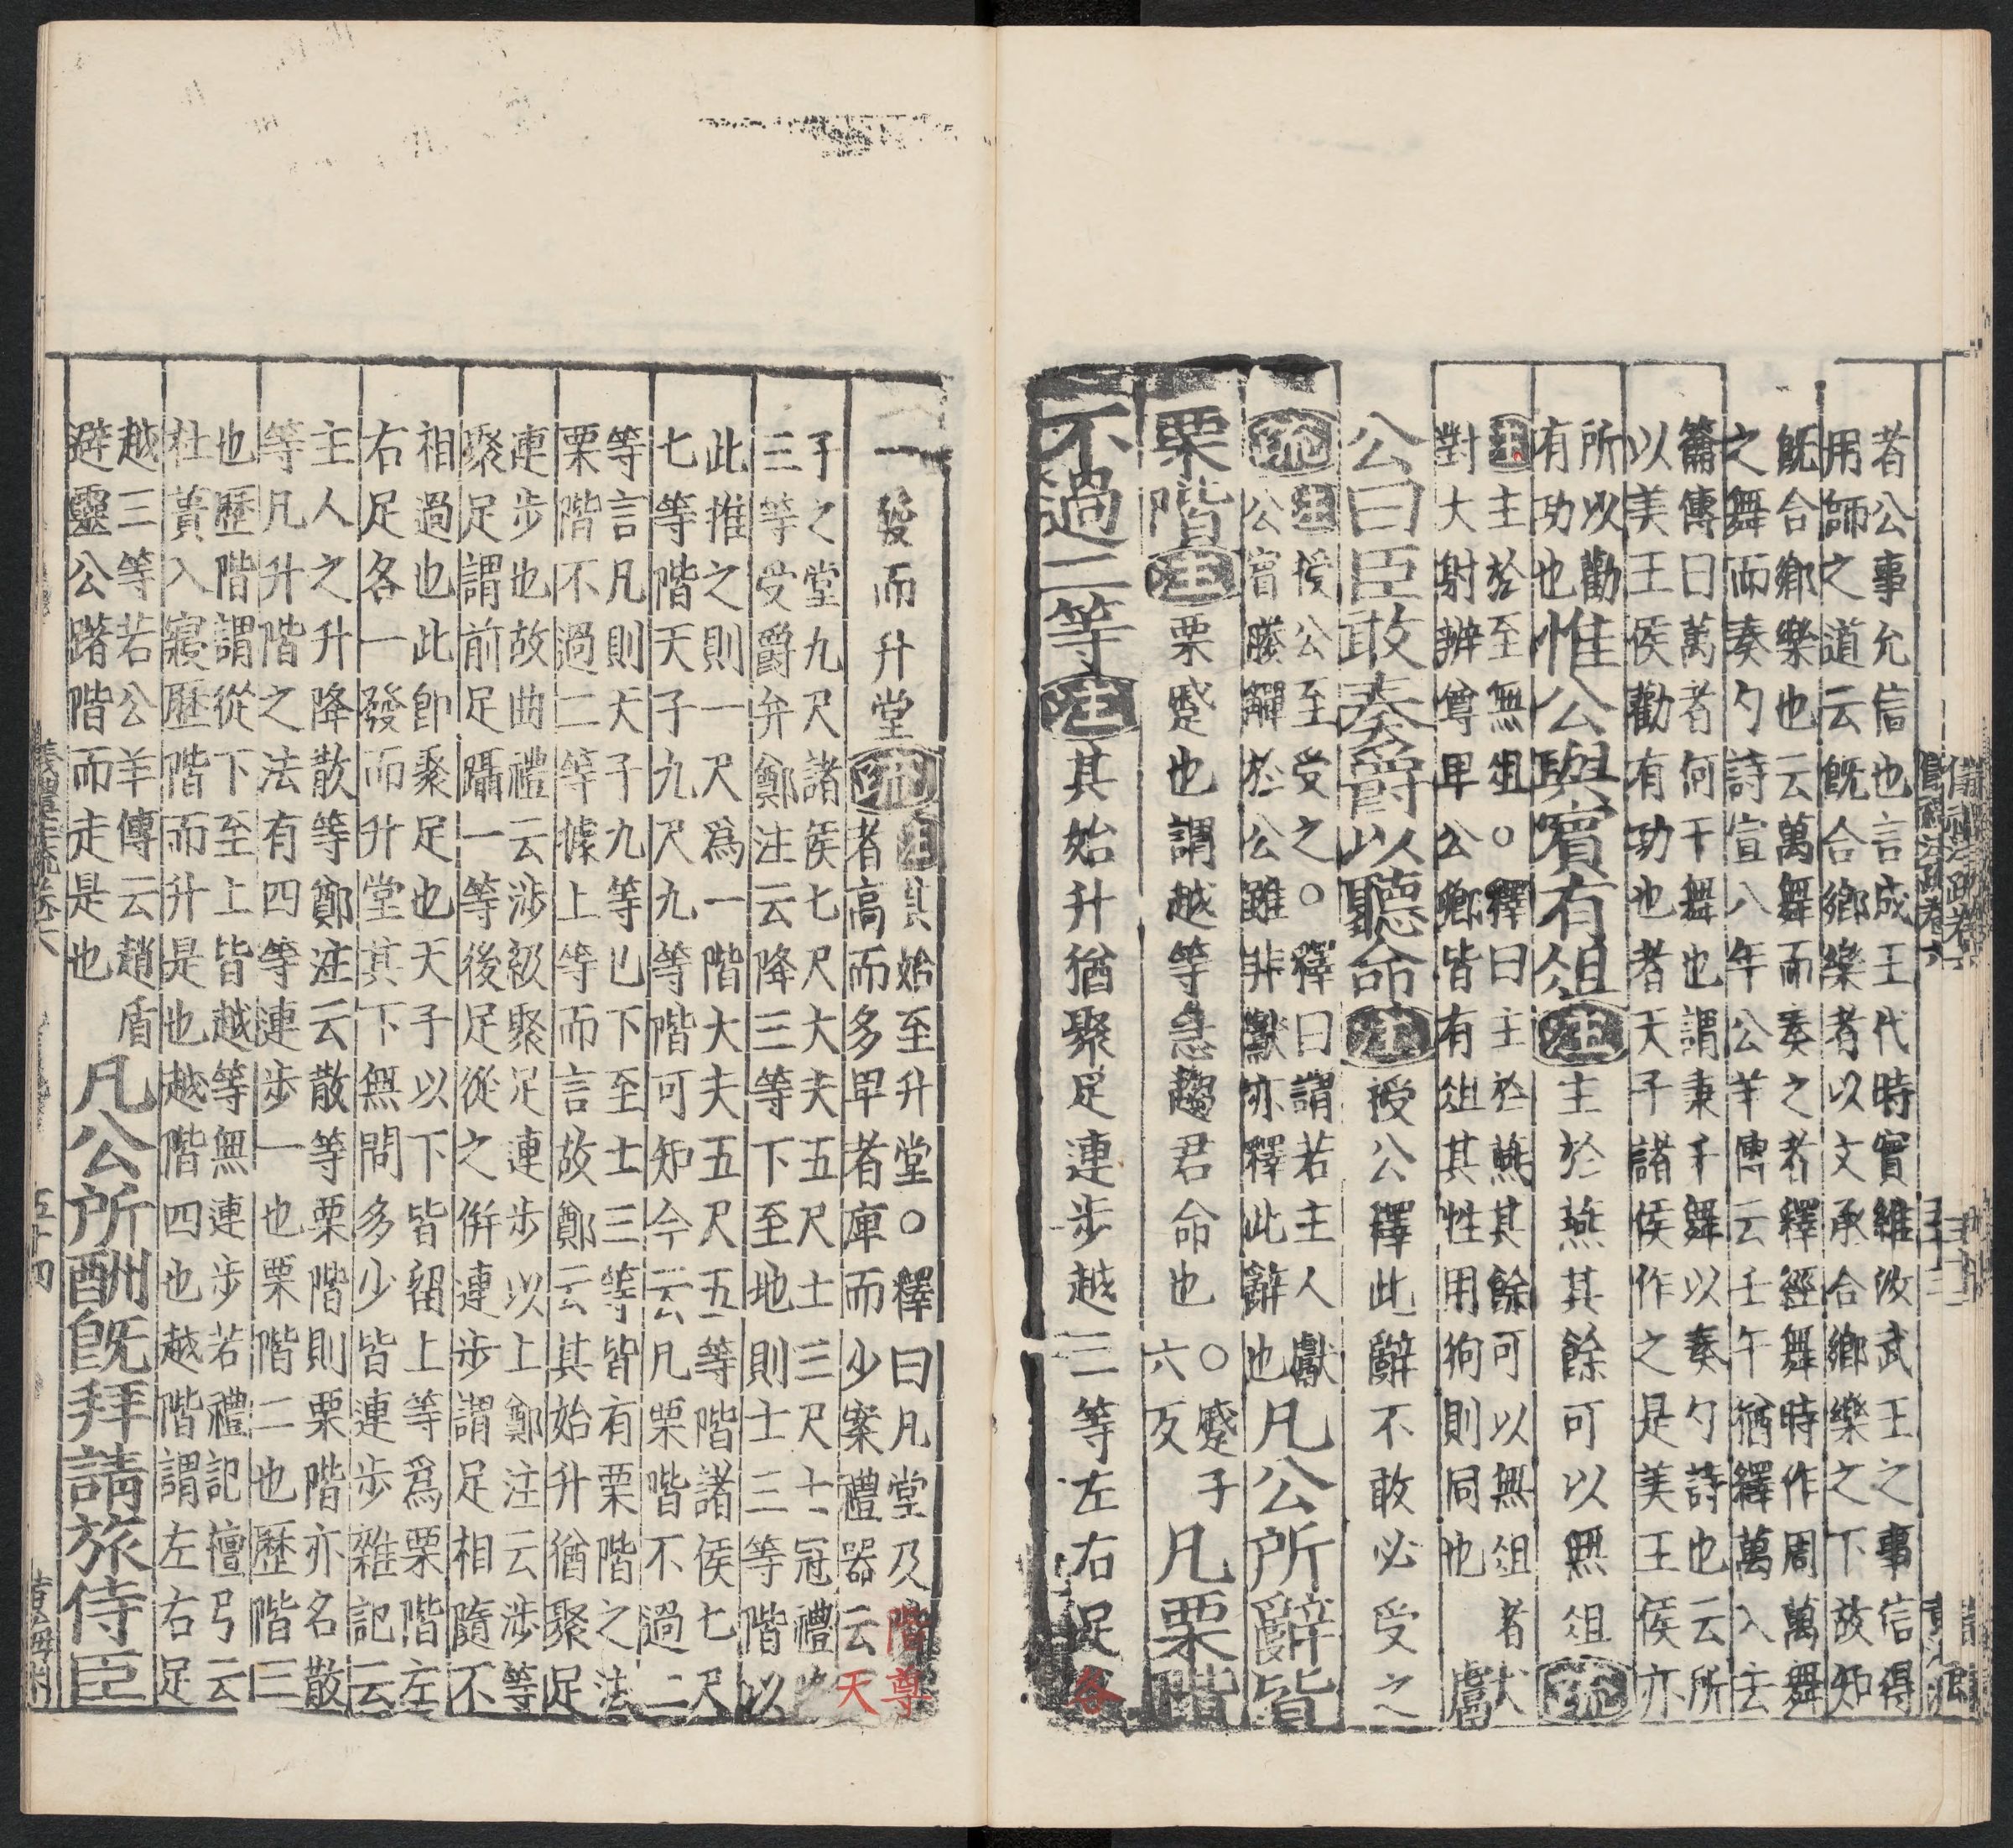 者公事允信也言成王代時實維汝武王之事信得
用師之道云既合鄉樂者以文承合鄉樂之下故知
既合鄉樂也云萬舞而奏之者釋經舞時作周萬舞
之舞而奏勺詩宣八年公羊傳云壬午猶釋萬入去
籥傳曰萬者何干舞也謂秉干舞以奏勺詩也云所
以美王侯勸有功也者天子諸侯作之是美王侯亦
所以勸
有功也惟公與賓有俎注主於燕其餘可以無俎疏
注主於至無俎○釋曰主於燕其餘可以無俎者
對大射辨尊卑公鄉皆有俎其牲用狗則同也
公曰臣敢奏爵以聽命注授公釋此辭不敢必受之
疏注授公至受之○釋曰謂若主人獻
公賓媵觶於公雖非獻亦釋此辭也凡公所辭皆
栗階注栗蹙也謂越等急趨君命也○蹙子
六反凡栗階
不過二等注其始升猶聚足連步越二等左右足各
一發而升堂疏注其始至升堂○釋曰凡堂及階尊
者高而多卑者庳而少案禮器云天
子之堂九尺諸侯七尺大夫五尺士三尺士冠禮
三等受爵弁鄭注云降三等下至地則士三等階以
此推之則一尺爲一階大夫五尺五等階諸侯七尺
七等階天子九尺九等階可知今云凡栗階不過二
等言凡則天子九等已下至士三等皆有栗階之法
栗階不過二等據上等而言故鄭云其始升猶聚足
連步也故曲禮云涉級聚足連步以上鄭注云涉等
聚足謂前足躡一等後足從之併連步謂足相隨不
相過也此即聚足也天子以下皆留上等爲栗階左
右足各一發而升堂其下無問多少皆連步雜記云
主人之升降散等鄭注云散等栗階則栗階亦名散
等凡升階之法有四等連步一也栗階二也歷階三
也歷階謂從下至上皆越等無連步若禮記檀弓云
杜蕢入寢歷階而升是也越階四也越階謂左右足
越三等若公羊傳云趙盾
避靈公躇階而走是也凡公所酬既拜請旅侍臣